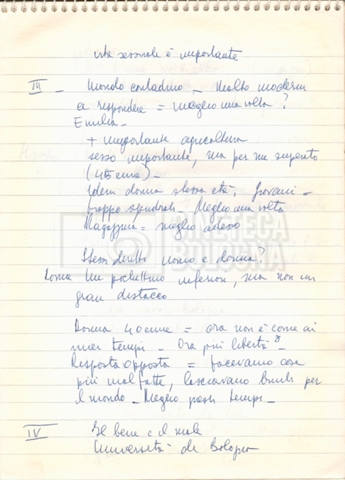 vita sessuale è importante
III - Mondo contadino - Molto moderni
a rispondere = meglio una volta?
Emilia -
+ importante agricoltura
sesso importante, ma per me superato
(45enne) -
Idem donna stessa età, giovani -
troppo spudorati - Meglio una volta
Ragazzina = meglio adesso
Stessi diritti uomo e donna?
Donna un pochettino inferiore, ma non un
gran distacco
Donna 40enne = ora non è come ai
miei tempi - Ora più libertà
Risposta opposta = facevano cose
più mal fatte, lasciavano bimbi per
il mondo - Meglio questi tempi -
IV - Il bene e il male
Università di Bologna
CINETECA
BOLOGNA